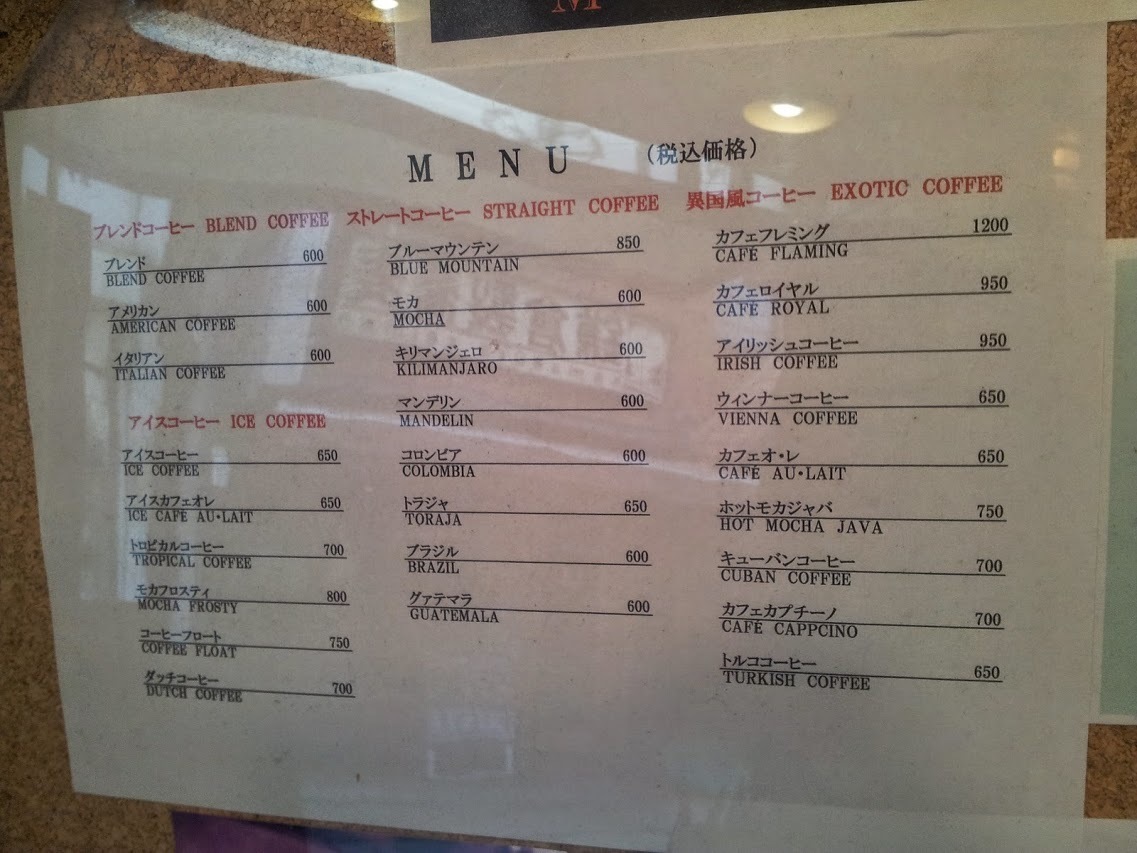 M
MENU (税込価格)
ブレンドコーヒー BLEND COFFEE
ブレンド 600
BLEND COFFEE
アメリカン 600
AMERICAN COFFEE
イタリアン 600
ITALIAN COFFEE
アイスコーヒー ICE COFFEE
アイスコーヒー 650
ICE COFFEE
アイスカフェオレ 650
ICE CAFE AU・LAIT
トロピカルコーヒー 700
TROPICAL COFFEE
モカフロスティ 800
MOCHA FROSTY
コーヒーフロート 750
COFFEE FLOAT
ダッチコーヒー 700
DUTCH COFFEE
ストレートコーヒー STRAIGHT COFFEE
ブルーマウンテン 850
BLUE MOUNTAIN
モカ 600
MOCHA
キリマンジェロ 600
KILIMANJARO
マンデリン 600
MANDELIN
コロンビア 600
COLOMBIA
トラジャ 650
TORAJA
ブラジル 600
BRAZIL
グァテマラ 600
GUATEMALA
異国風コーヒー EXOTIC COFFEE
カフェフレミング 1200
CAFÉ FLAMING
カフェロイヤル 950
CAFÉ ROYAL
アイリッシュコーヒー 950
IRISH COFFEE
ウィンナーコーヒー 650
VIENNA COFFEE
カフェオ・レ 650
CAFÉ AU・LAIT
ホットモカジャバ 750
HOT MOCHA JAVA
キューバンコーヒー 700
CUBAN COFFEE
カフェカプチーノ 700
CAFÉ CAPPCINO
トルココーヒー 650
TURKISH COFFEE